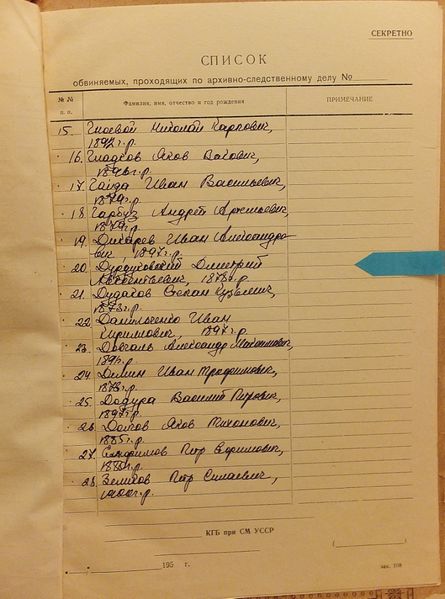 СЕКРЕТНО
СПИСОК
обвиняемых, проходящих по архивно-следственному делу №
№ №
п. п.
Фамилия, имя, отчество и год рождения
ПРИМЕЧАНИЕ
15. Гноевой Николай Карпович,
г.р.
16. Гладков Яков
г.р.
17. Гайда Иван Васильевич,
1879 г.р.
18. Гарбуз Андрей Артемьевич,
1879 г.р.
19. Дихарев Иван Александро-
вич, 1897 г.р.
20. Дмитрий
1873 г.р.
21. Дудаков Степан Кузьмич,
1873 г.р.
22. Данильченко Иван
Кириллович, 1897 г.р.
23. Довгаль Александр Максимович,
г.р.
24. Демин Иван Трофимович,
1878 г.р.
25. Додура Василий Петрович,
г.р.
26. Долгов Яков Тихонович,
1885 г.р.
27. Елефиров Петр Ефимович,
г.р.
28. Зеликов Петр Силаевич,
г.р.
КГБ при СМ УССР
195 г.
зак. 108